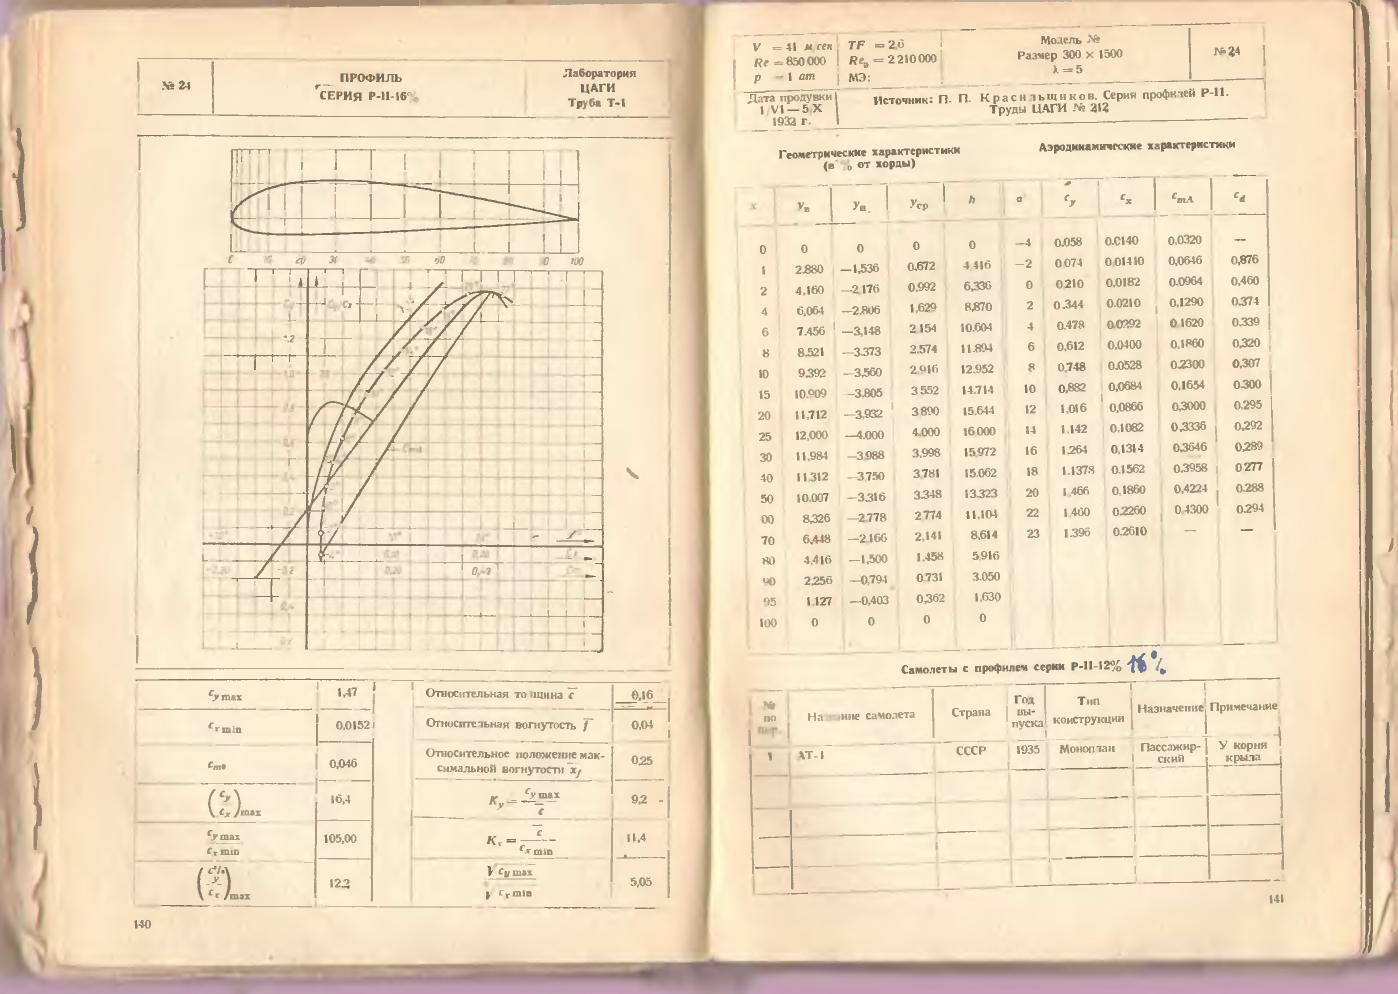 № 24
ПРОФИЛЬ
СЕРИЯ Р-II-16%
Лаборатория
ЦАГИ
Труба Т-1
0 10 20 30 40 50 60 70 80 90 100
c_y max 1,47
c_x min 0,0152
c_m0 0,046
(c_y / c_x) max 16,4
c_y max / c_x min 105,00
12,2
Относительная толщина c̅ 0,16
Относительная вогнутость f̅ 0,04
Относительное положение мак-
симальной вогнутости x̅_f 0,25
K_y = c_y max / c̅ 9,2
K_x = c̅ / c_x min 11,4
√c_y max / √c_x min 5,05
140
V = 41 м/сек TF = 2,6
Re = 850 000 Re_э = 2 210 000
p = 1 ат МЭ:
Модель №
Размер 300 × 1500
λ = 5
№ 24
Дата продувки
1/VI — 5/X
1932 г.
Источник: П. П. Красильщиков. Серия профилей Р-II.
Труды ЦАГИ № 212
Геометрические характеристики
(в % от хорды)
Аэродинамические характеристики
x y_в y_н y_ср h α° c_y c_x c_mA c_d
0 0 0 0 0 —4 0.058 0.0140 0.0320 —
1 2.880 —1,536 0.672 4 416 —2 0 074 0.01410 0,0646 0,876
2 4,160 —2 176 0.992 6,336 0 0 210 0.0182 0.0964 0,460
4 6,064 —2,806 1,629 8,870 2 0.344 0.0210 0,1290 0.374
6 7.456 —3,148 2 154 10.604 4 0.478 0.0292 0.1620 0.339
8 8.521 —3.373 2.574 11.894 6 0,612 0,0400 0,1860 0,320
10 9.392 —3,560 2.916 12.952 8 0,748 0.0528 0.2300 0,307
15 10.909 —3,805 3 552 14.714 10 0,882 0,0684 0,1654 0.300
20 11,712 —3,932 3 890 15.644 12 1,016 0,0866 0,3000 0.295
25 12,000 —4.000 4.000 16 000 14 1.142 0.1082 0,3336 0,292
30 11,984 —3,988 3,998 15,972 16 1,264 0,1314 0.3646 0,289
40 11.312 —3 750 3,781 15.062 18 1.1378 0.1562 0.3958 0 277
50 10.007 —3.316 3.348 13.323 20 1 466 0,1860 0.4224 0.288
00 8,326 —2.778 2.774 11,104 22 1 460 0,2260 0,4300 0.294
70 6,448 —2,166 2,141 8,614 23 1.396 0.2610 — —
80 4,416 —1,500 1.458 5,916
90 2,256 —0,794 0.731 3.050
95 1.127 —0,403 0,362 1,630
100 0 0 0 0
Самолеты с профилем серии Р-II-12% 16%
№
по
Название самолета
Страна
Год
вы-
пуска
Тип
конструкции
Назначение
Примечание
1 АТ-1 СССР 1935 Моноплан Пассажир-
ский
У корня
крыла
141